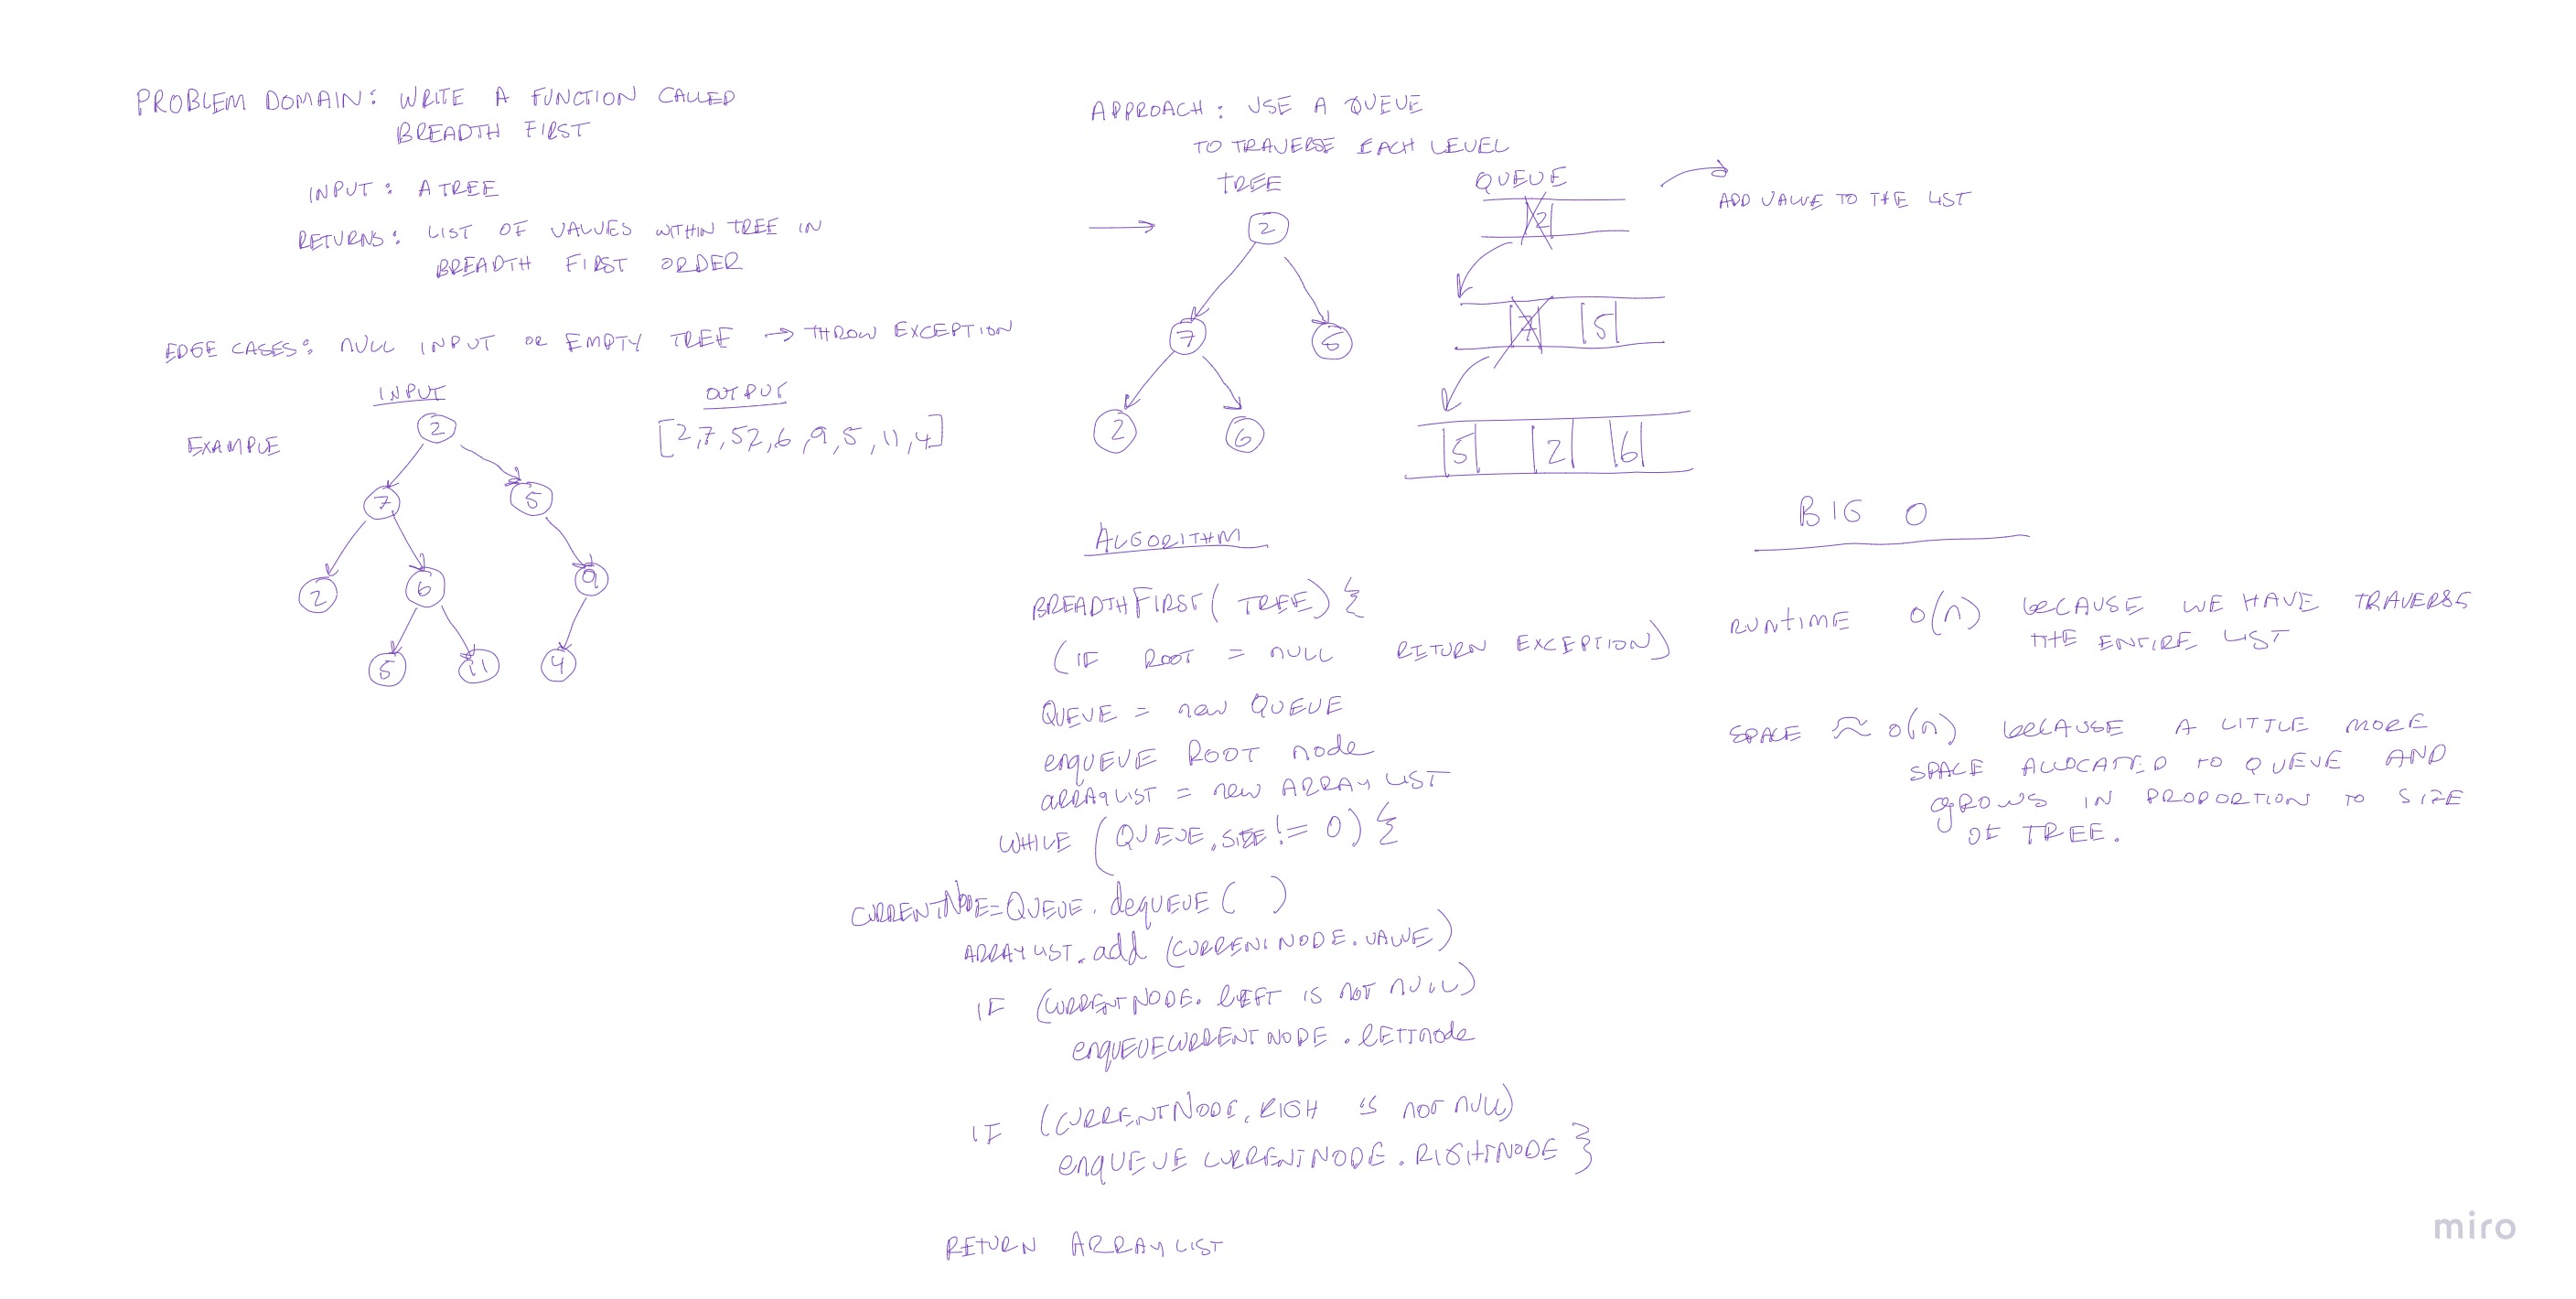 PROBLEM DOMAIN: WRITE A FUNCTION CALLED
BREADTH FIRST
INPUT: A TREE
RETURNS: LIST OF VALUES WITHIN TREE IN
BREADTH FIRST ORDER
EDGE CASES: NULL INPUT OR EMPTY TREE → THROW EXCEPTION
INPUT
OUTPUT
EXAMPLE
[2,7,52,6,9,5,11,4]
2
7
5
2
6
9
5
11
4
APPROACH: USE A QUEUE
TO TRAVERSE EACH LEVEL
TREE
QUEUE
ADD VALUE TO THE LIST
2
7
6
2
6
2
7 5
5 2 6
ALGORITHM
BREADTHFIRST(TREE){
(IF ROOT = NULL RETURN EXCEPTION)
QUEUE = new QUEUE
enqUEUE ROOT node
aRRAyLIST = new ARRAYLIST
WHILE (QUEUE.SIZE != 0){
CURRENTNODE=QUEUE.dequEUE( )
ARRAYLIST.add (CURRENTNODE.VALUE)
IF (CURRENTNODE.lEFT IS NOT NULL)
enqUEUECURRENTNODE.lEFTnode
IF (CURRENTNODE.RIGH IS NOT NULL)
enqUEUE CURRENTNODE.RIGHTNODE }
RETURN ARRAYLIST
BIG O
RUNTIME O(n) beCAUSE WE HAVE TRAVERSE
THE ENTIRE LIST
SPACE ≈ O(n) beCAUSE A LITTLE MORE
SPACE ALLOCATED TO QUEUE AND
gROWS IN PROPORTION TO SIZE
OF TREE.
miro